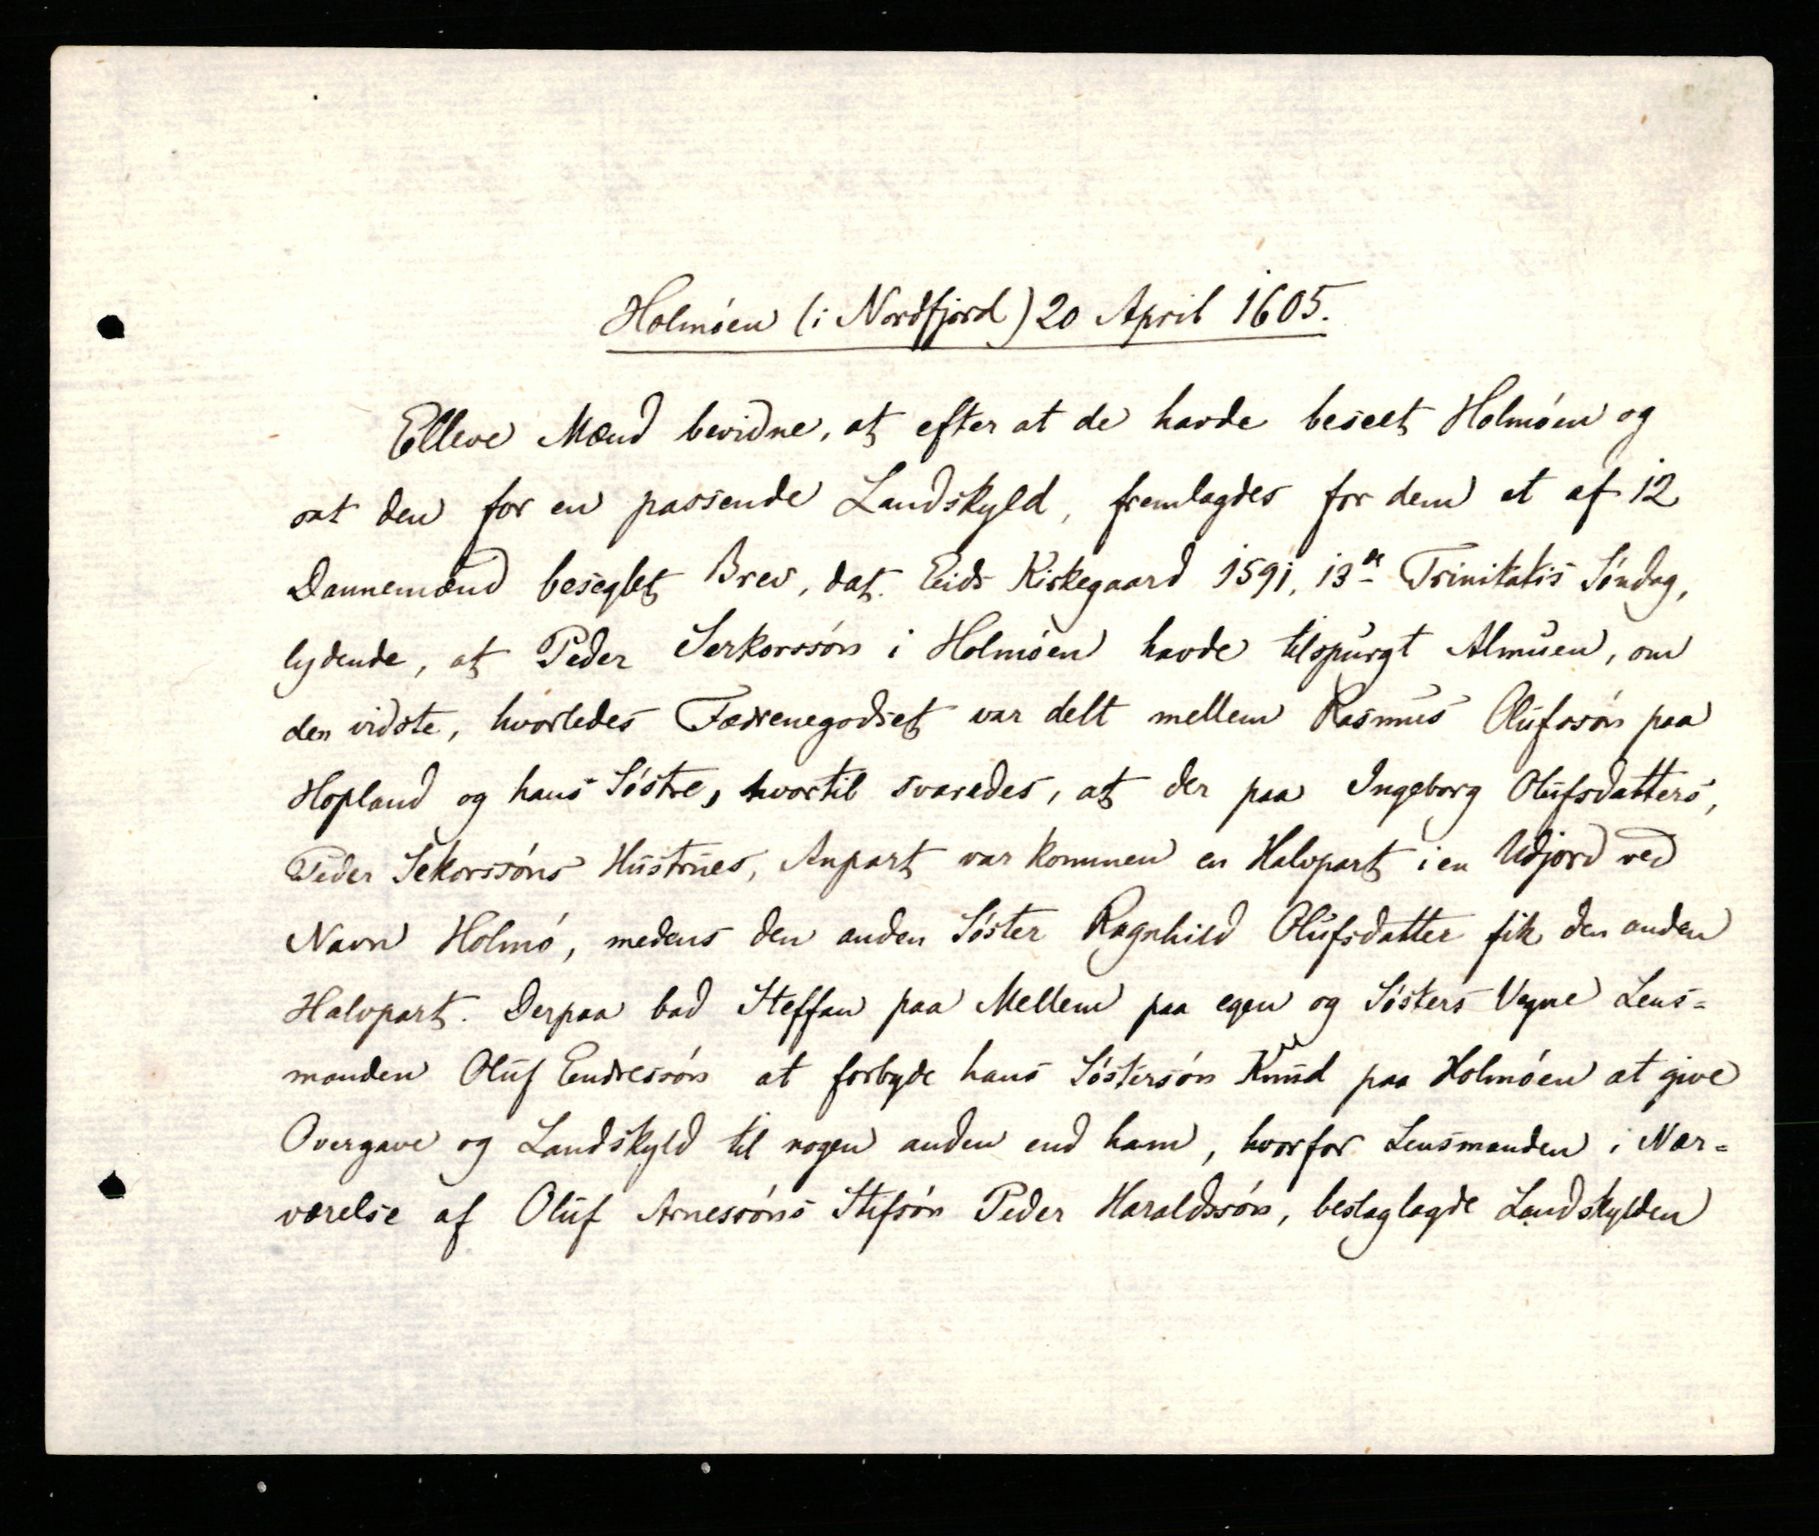 Holmöen (i Nordfjord) 20 April 1605.
Elleve Mænd bevidne, at efter at de havde beseet Holmöen og
sat den for en passende Landskyld, fremlagdes for dem et af 12
Dannemænd beseglet Brev, dat. Eids Kirkegaard 1591, 13de Trinitatis Söndag,
lydende, at Peder Serkorssön i Holmöen havde tilspurgt Almuen, om
den vidste, hvorledes Fædrenegodset var delt mellem Rasmus Olufssön paa
Hopland og hans Söstre, hvortil svaredes, at der paa Ingeborg Olufsdatters,
Peder Sekorssöns Hustrues, Anpart var kommen en Halvpart i en Udjord ved
Navn Holmö, medens den anden Söster Ragnhild Olufsdatter fik den anden
Halvpart. Derpaa bad Steffan paa Mellem paa egen og Sösters Vegne Lens=
manden Oluf Endressön at forbyde hans Söstersön Knud paa Holmöen at give
Overgave og Landskyld til nogen anden end ham, hvorfor Lensmanden i Nær=
værelse af Oluf Arnessöns Stifsön Peder Haraldssön, beslaglagde Landskylden